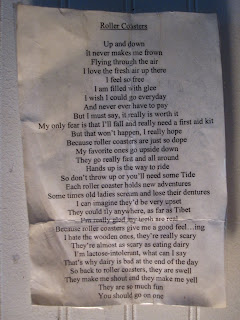 Roller Coasters
Up and down
It never makes me frown
Flying through the air
I love the fresh air up there
I feel so free
I am filled with glee
I wish I could go everyday
And never ever have to pay
But I must say, it really is worth it
My only fear is that I'll fall and really need a first aid kit
But that won't happen, I really hope
Because roller coasters are just so dope
My favorite ones go upside down
They go really fast and all around
Hands up is the way to ride
So don't throw up or you'll need some Tide
Each roller coaster holds new adventures
Some times old ladies scream and lose their dentures
I can imagine they'd be very upset
They could fly anywhere, as far as Tibet
I'm really glad my teeth are real
Because roller coasters give me a good feel…ing
I hate the wooden ones, they're really scary
They're almost as scary as eating dairy
I'm lactose-intolerant, what can I say
That's why dairy is bad at the end of the day
So back to roller coasters, they are swell
They make me shout and they make me yell
They are so much fun
You should go on one